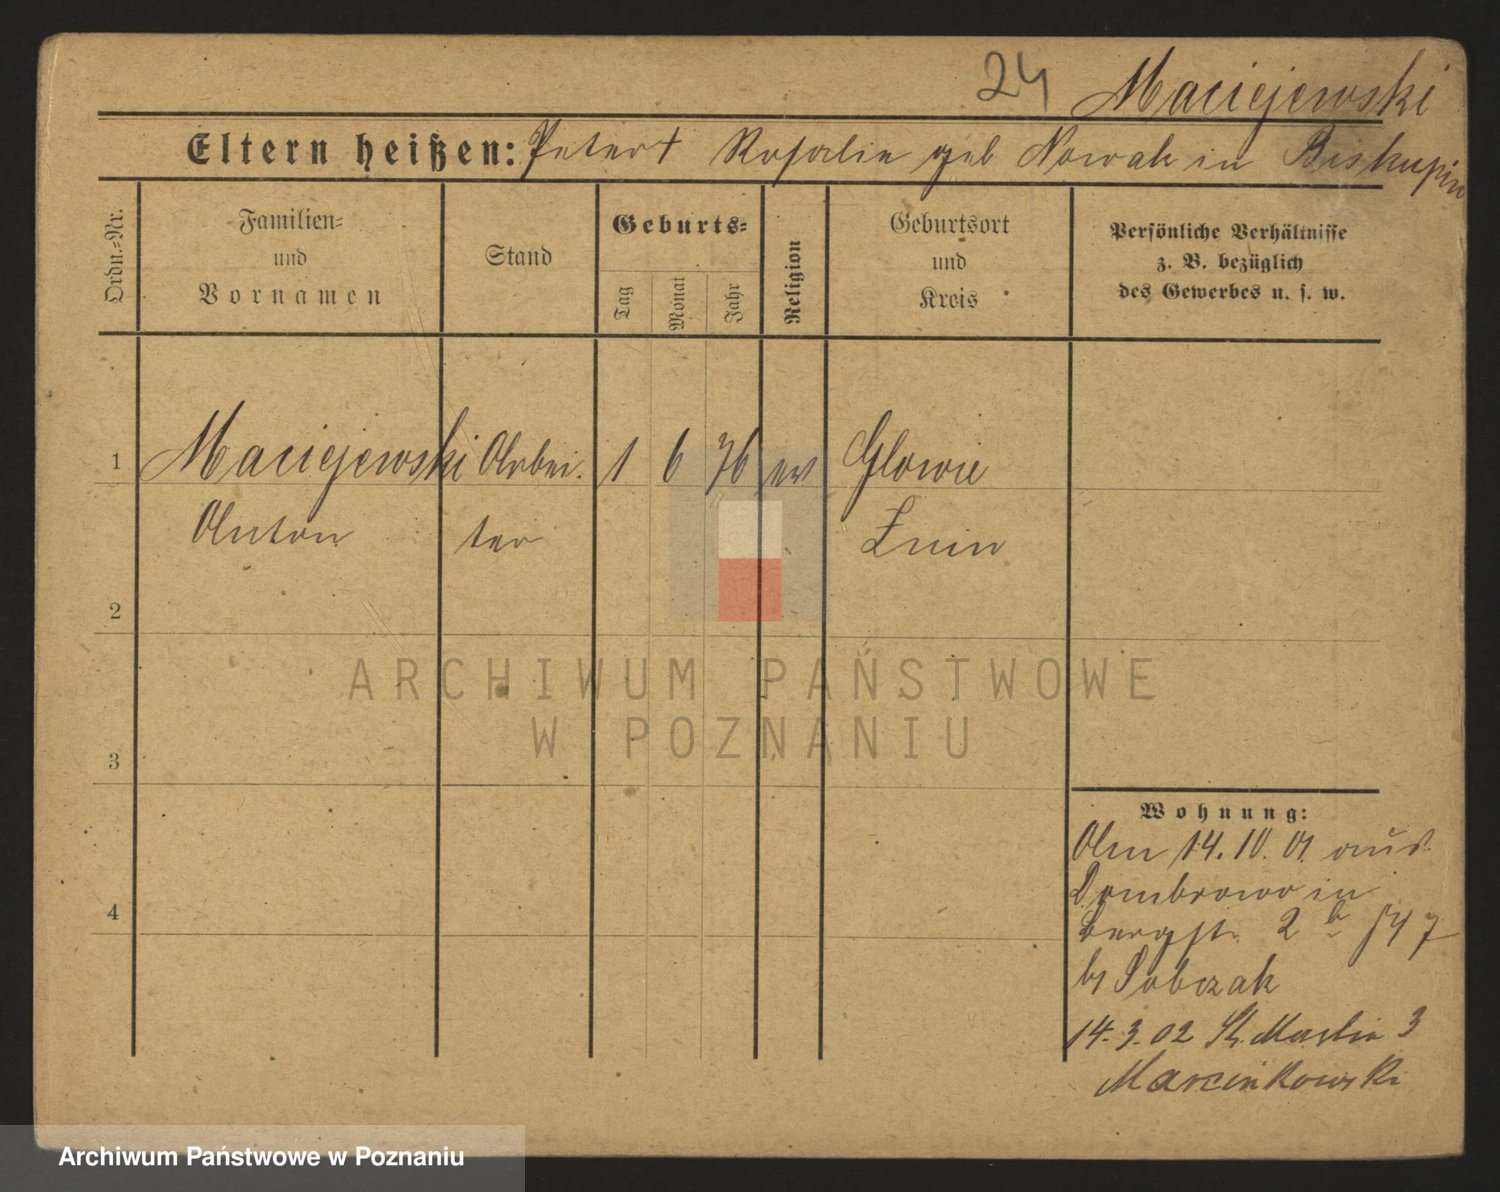 24 Maciejewski
Eltern heißen: Peter † Rosalie geb Nowak in Biskupin
Ordn.-Nr.
Familien-
und
Vornamen
Stand
Geburts-
Tag
Monat
Jahr
Religion
Geburtsort
und
Kreis
Persönliche Verhältnisse
z. B. bezüglich
des Gewerbes u. s. w.
1 Maciejewski Arbei- 1 6 76 Glowie
Anton ter Znin
2
3
4
Wohnung:
Am 14.10.01 aus
Dombrowo in
Bergstr. 2 b
Sobczak
14.3.02 St. Martin 3
Marcinkowski
ARCHIWUM PAŃSTWOWE
W POZNANIU
Archiwum Państwowe w Poznaniu